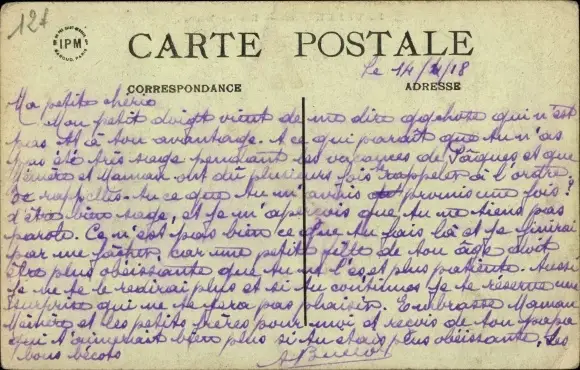 127
IPM
CARTE POSTALE
CORRESPONDANCE
ADRESSE
Le 14/4/18
Ma petite chérie
Mon petit doigt vient de me dire qqchose qui n'est
pas à ton avantage. A ce qui paraît que tu n'as
pas été très sage pendant les vacances de Pâques et que
Mémère et Maman ont dû plusieurs fois rappeler à l'ordre.
Te rappelles-tu ce que tu m'avais promis une fois?
d'être bien sage, et je m'aperçois que tu ne tiens pas
parole. Ce n'est pas bien ce que tu fais là et je finirai
par me fâcher, car une petite fille de ton âge doit
être plus obéissante que tu ne l'es, et plus patiente. Aussi
je ne te le redirai plus et si tu continues je te réserve une
surprise qui ne te fera pas plaisir. Embrasse Maman
Mémère et les petits frères pour moi et reçois de ton papa
qui t'aimerait bien plus si tu étais plus obéissante, les
bons bécots